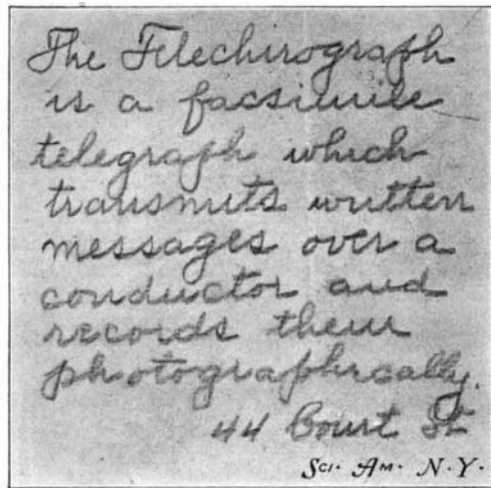 The Telechirograph
is a facsimile
telegraph which
transmits written
messages over a
conductor and
records them
photographically.
44 Court St
Sci. Am. N.Y.